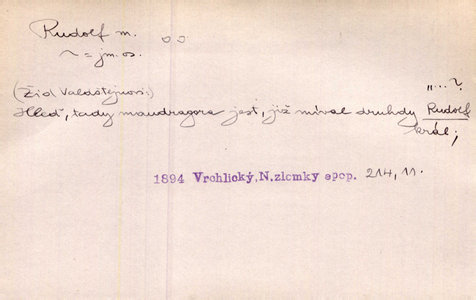 Rudolf m.
~ = jm. os.
(Žid Valdštejnovi:) „...?
Hleď, tady mandragora jest, již míval druhdy Rudolf
král;
1894 Vrchlický, N. zlomky epop. 214, 11.